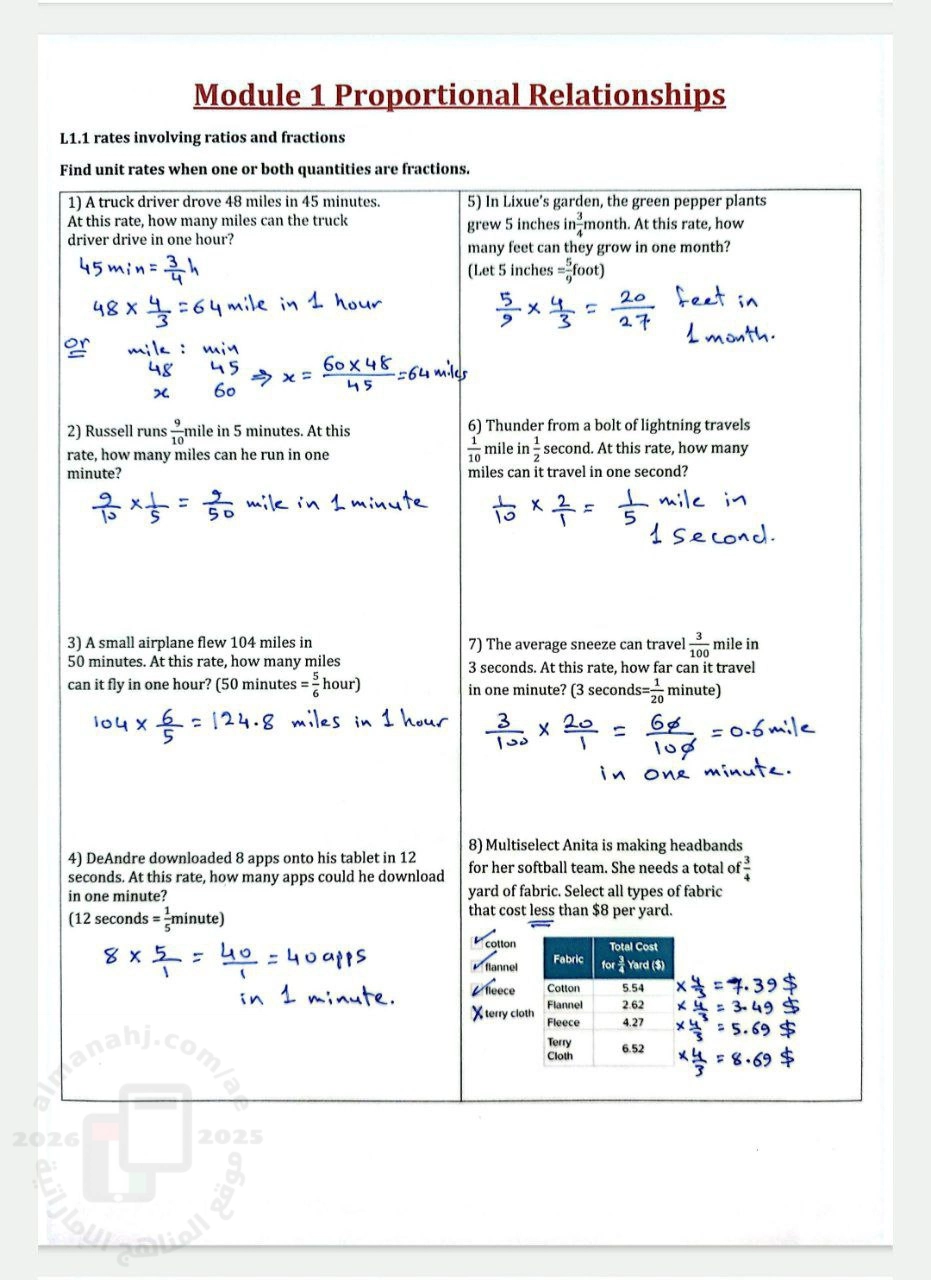 Module 1 Proportional Relationships
L1.1 rates involving ratios and fractions
Find unit rates when one or both quantities are fractions.
1) A truck driver drove 48 miles in 45 minutes.
At this rate, how many miles can the truck
driver drive in one hour?
45 min = 3/4 h
48 × 4/3 = 64 mile in 1 hour
or
mile : min
48 45
x 60
⇒ x = 60 × 48 / 45 = 64 miles
2) Russell runs 9/10 mile in 5 minutes. At this
rate, how many miles can he run in one
minute?
9/10 × 1/5 = 9/50 mile in 1 minute
3) A small airplane flew 104 miles in
50 minutes. At this rate, how many miles
can it fly in one hour? (50 minutes = 5/6 hour)
104 × 6/5 = 124.8 miles in 1 hour
4) DeAndre downloaded 8 apps onto his tablet in 12
seconds. At this rate, how many apps could he download
in one minute?
(12 seconds = 1/5 minute)
8 × 5/1 = 40/1 = 40 apps
in 1 minute.
5) In Lixue's garden, the green pepper plants
grew 5 inches in 3/4 month. At this rate, how
many feet can they grow in one month?
(Let 5 inches = 5/9 foot)
5/9 × 4/3 = 20/27 feet in
1 month.
6) Thunder from a bolt of lightning travels
1/10 mile in 1/2 second. At this rate, how many
miles can it travel in one second?
1/10 × 2/1 = 1/5 mile in
1 second.
7) The average sneeze can travel 3/100 mile in
3 seconds. At this rate, how far can it travel
in one minute? (3 seconds= 1/20 minute)
3/100 × 20/1 = 60/100 = 0.6 mile
in one minute.
8) Multiselect Anita is making headbands
for her softball team. She needs a total of 3/4
yard of fabric. Select all types of fabric
that cost less than $8 per yard.
✓ cotton
✓ flannel
✓ fleece
X terry cloth
Fabric Total Cost for 3/4 Yard ($)
Cotton 5.54 × 4/3 = 7.39 $
Flannel 2.62 × 4/3 = 3.49 $
Fleece 4.27 × 4/3 = 5.69 $
Terry Cloth 6.52 × 4/3 = 8.69 $
almanahj.com/ae
2026 2025
موقع المناهج الإماراتية